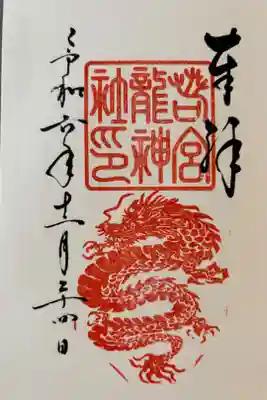 奉拝
若宮
龍神
社印
令和六年十一月二十四日